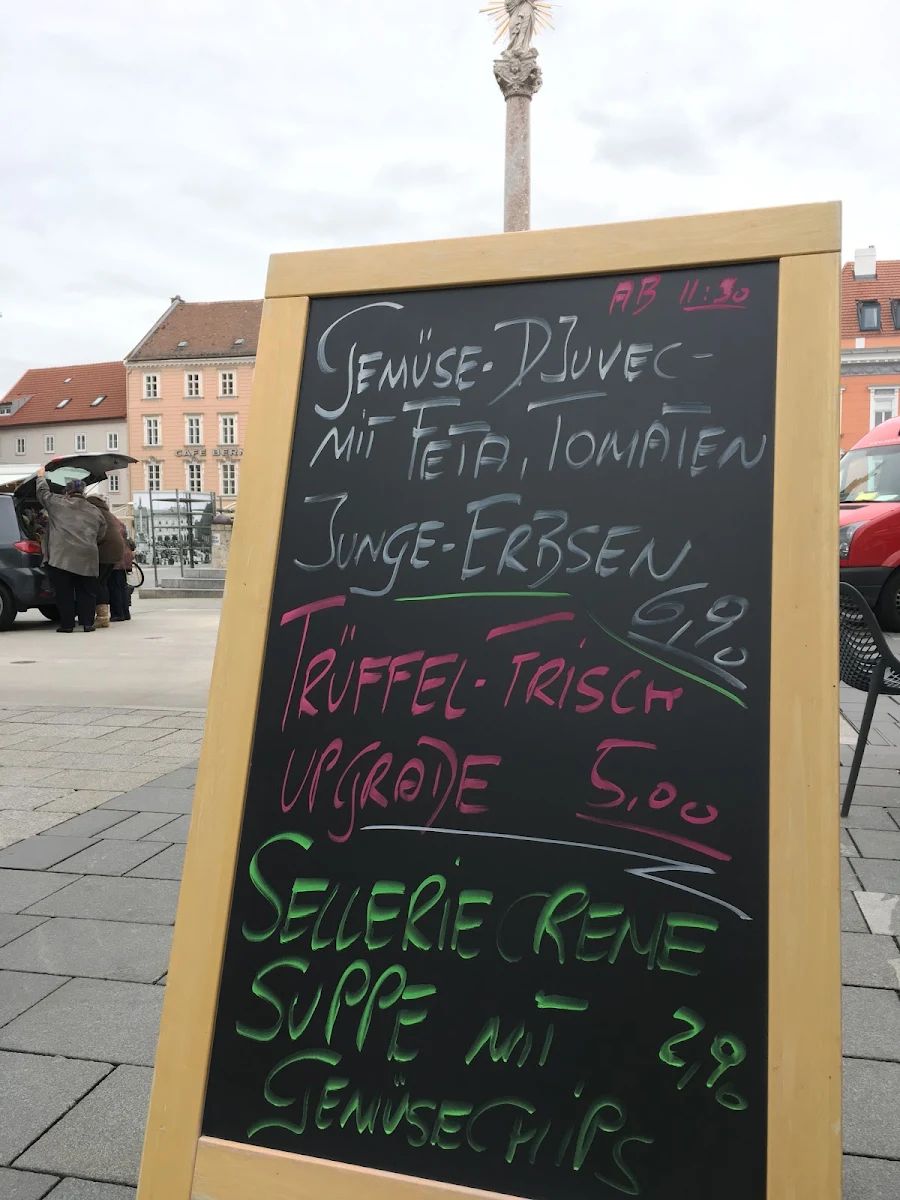 AB 11:30
GEMÜSE-DJUVEC-
MIT FETA, TOMATEN
JUNGE-ERBSEN
6,90
TRÜFFEL-TRISCH
UPGRADE 5,00
SELLERIE CREME
SUPPE MIT 2,90
GEMÜSECHIPS
CAFE BERN